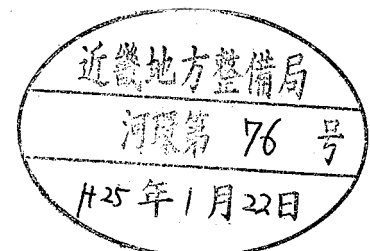 近畿地方整備局
河環第 76 号
H25年1月22日